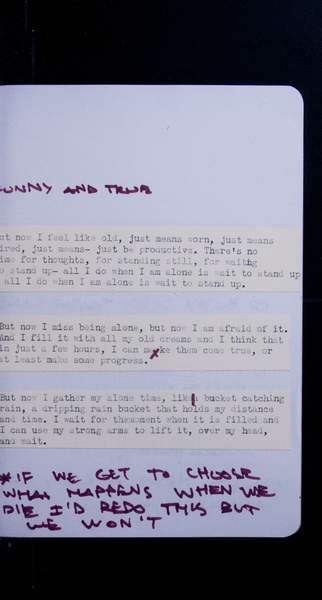 FUNNY AND TRUE
ut now I feel like old, just means worn, just means
ired, just means- just be productive. There's no
ime for thoughts, for standing still, for waitng
o stand up- all I do when I am alone is wait to stand up
all I do when I am alone is wait to stand up.
But now I miss being alone, but now I am afraid of it.
And I fill it with all my old dreams and I think that
in just a few hours, I can make them come true, or
at least make some progress.
But now I gather my alone time, like a bucket catching
rain, a dripping rain bucket that holds my distance
and time. I wait for themument when it is filled and
I can use my strong arms to lift it, over my head,
and wait.
*IF WE GET TO CHOOSE
WHAT HAPPENS WHEN WE
DIE I'D REDO THIS BUT
WE WON'T